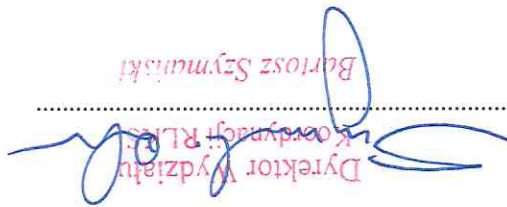 Dyrektor Wydziału
Koordynacji RLKS
Bartosz Szymański